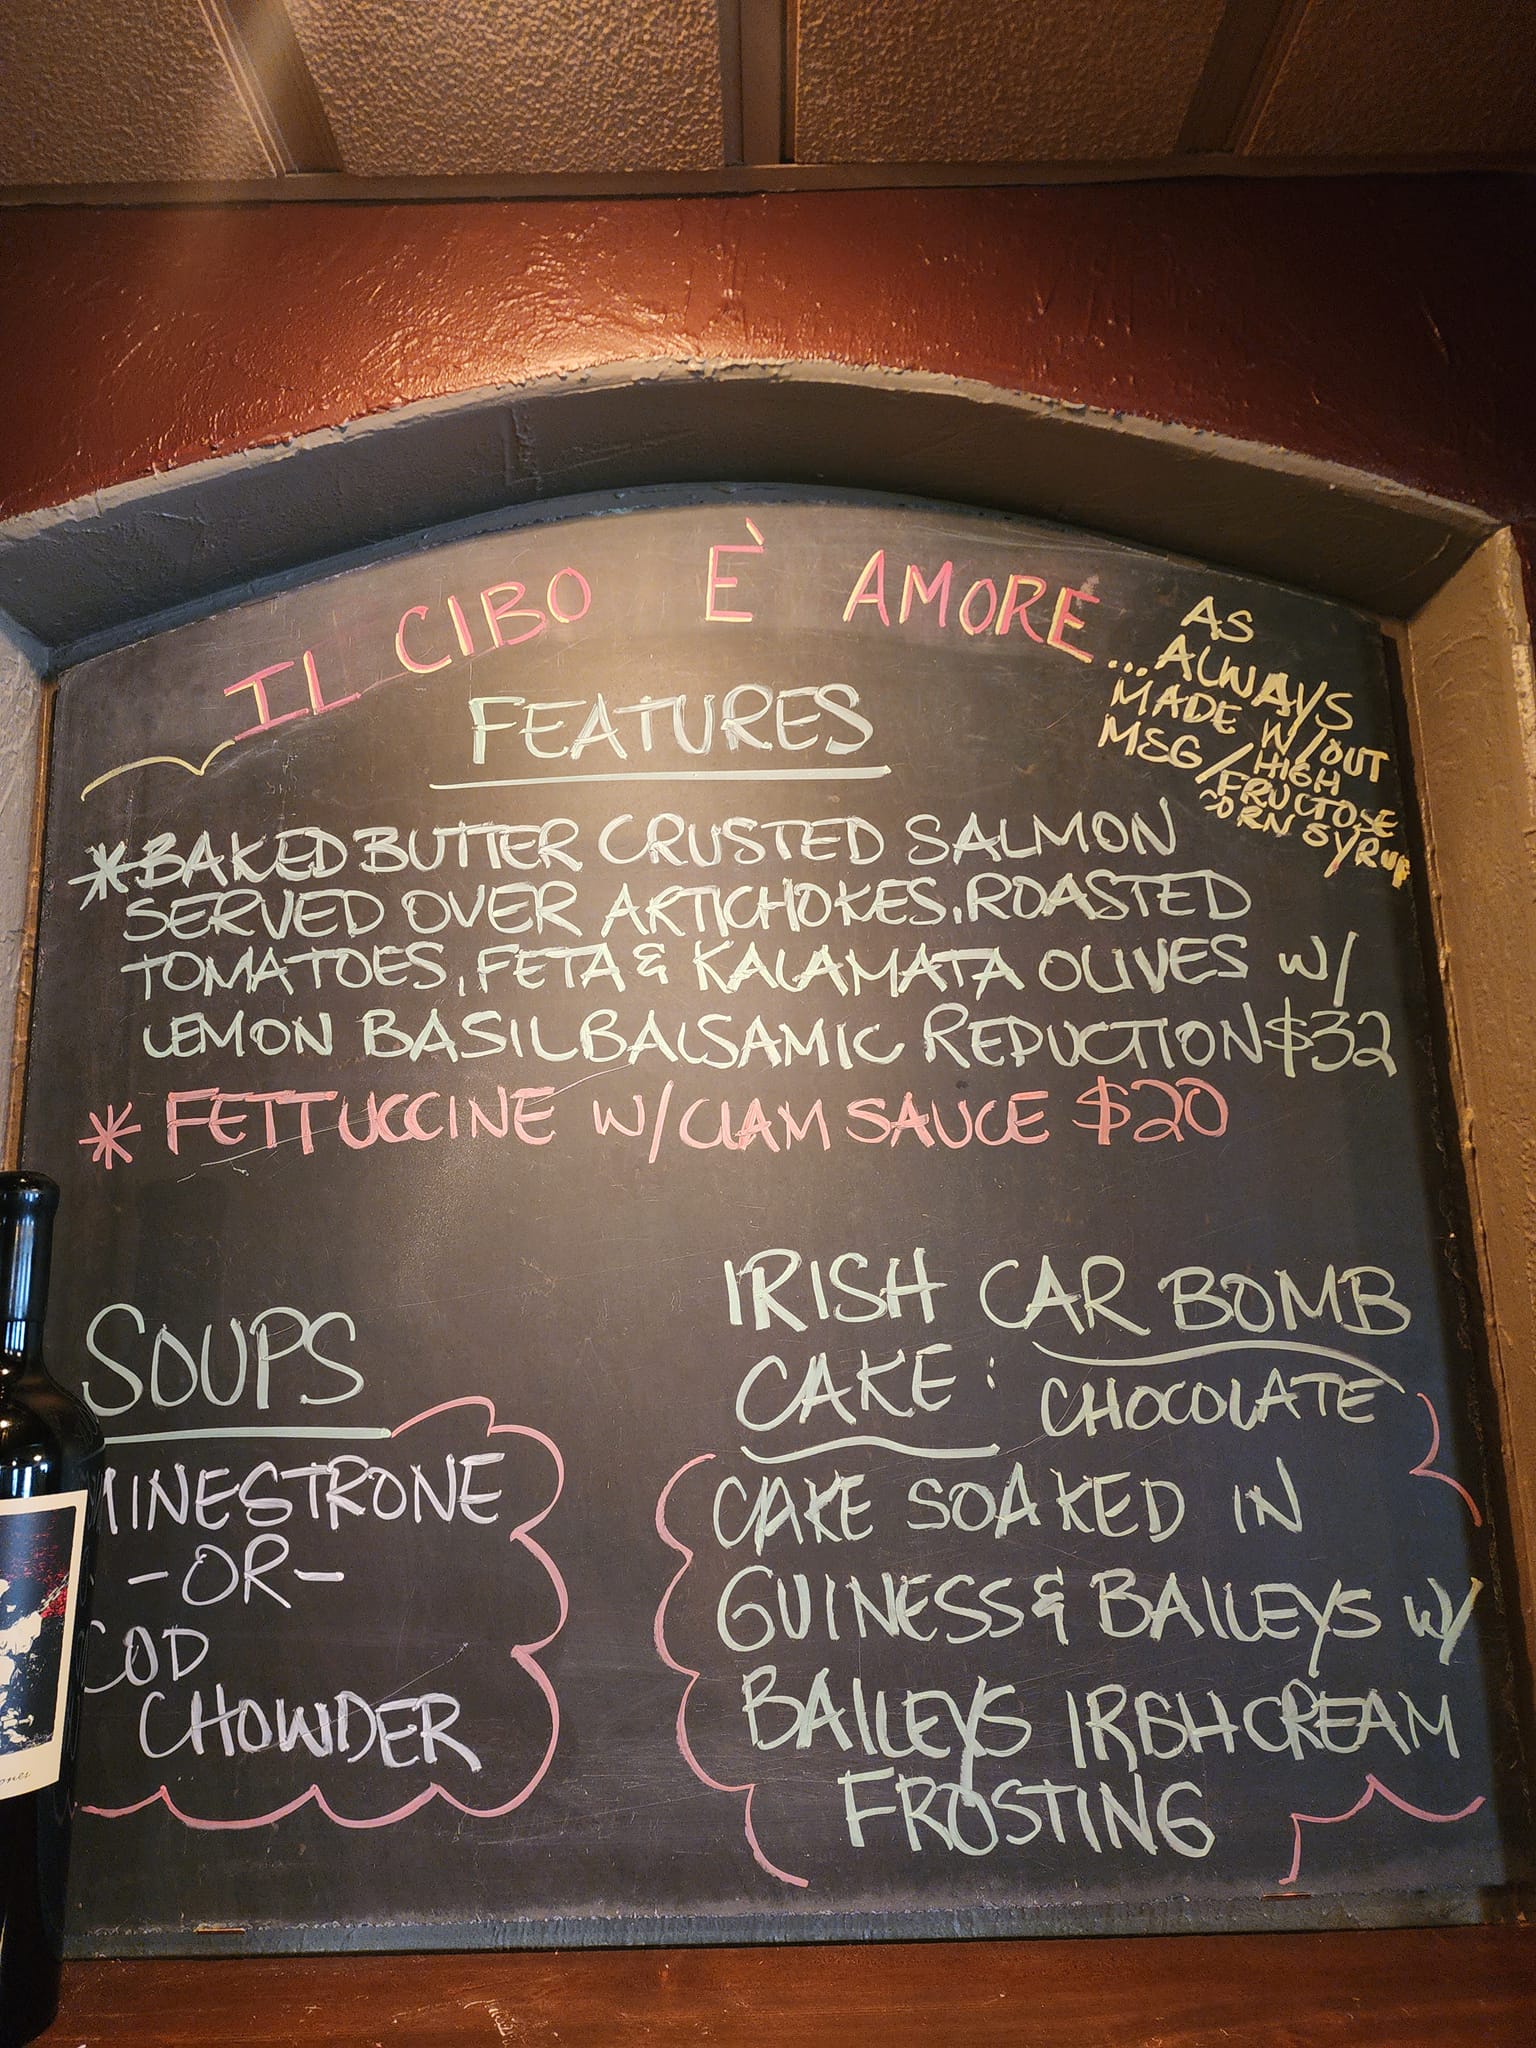 IL CIBO È AMORE...
AS
ALWAYS
MADE W/OUT
MSG/HIGH
FRUCTOSE
CORN SYRUP
FEATURES
*BAKED BUTTER CRUSTED SALMON
SERVED OVER ARTICHOKES, ROASTED
TOMATOES, FETA & KALAMATA OLIVES W/
LEMON BASIL BALSAMIC REDUCTION $32
* FETTUCCINE W/CLAM SAUCE $20
SOUPS
MINESTRONE
-OR-
COD
CHOWDER
IRISH CAR BOMB
CAKE: CHOCOLATE
CAKE SOAKED IN
GUINESS & BAILEYS W/
BAILEYS IRISH CREAM
FROSTING